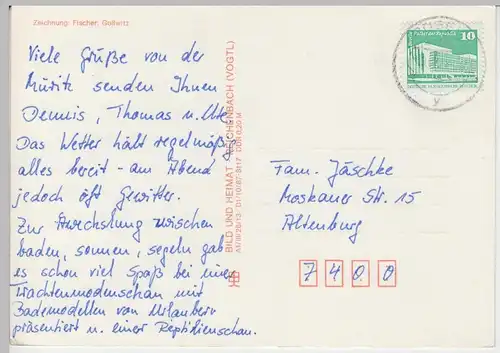 Zeichnung: Fischer, Goßwitz
Viele Grüße von der
Müritz senden Ihnen
Dennis, Thomas u. Ute.
Das Wetter hält regelmäßig
alles bereit - am Abend
jedoch oft Gewitter.
Zur Abwechslung zwischen
baden, sonnen, segeln gab
es schon viel Spaß bei einer
Trachtenmodenschau mit
Bademodellen von Urlaubern
präsentiert u. einer Reptilienschau.
BILD UND HEIMAT REICHENBACH (VOGTL)
Palast der Republik
10
DEUTSCHE DEMOKRATISCHE REPUBLIK
y
Fam. Jäschke
Moskauer Str. 15
Altenburg
7400